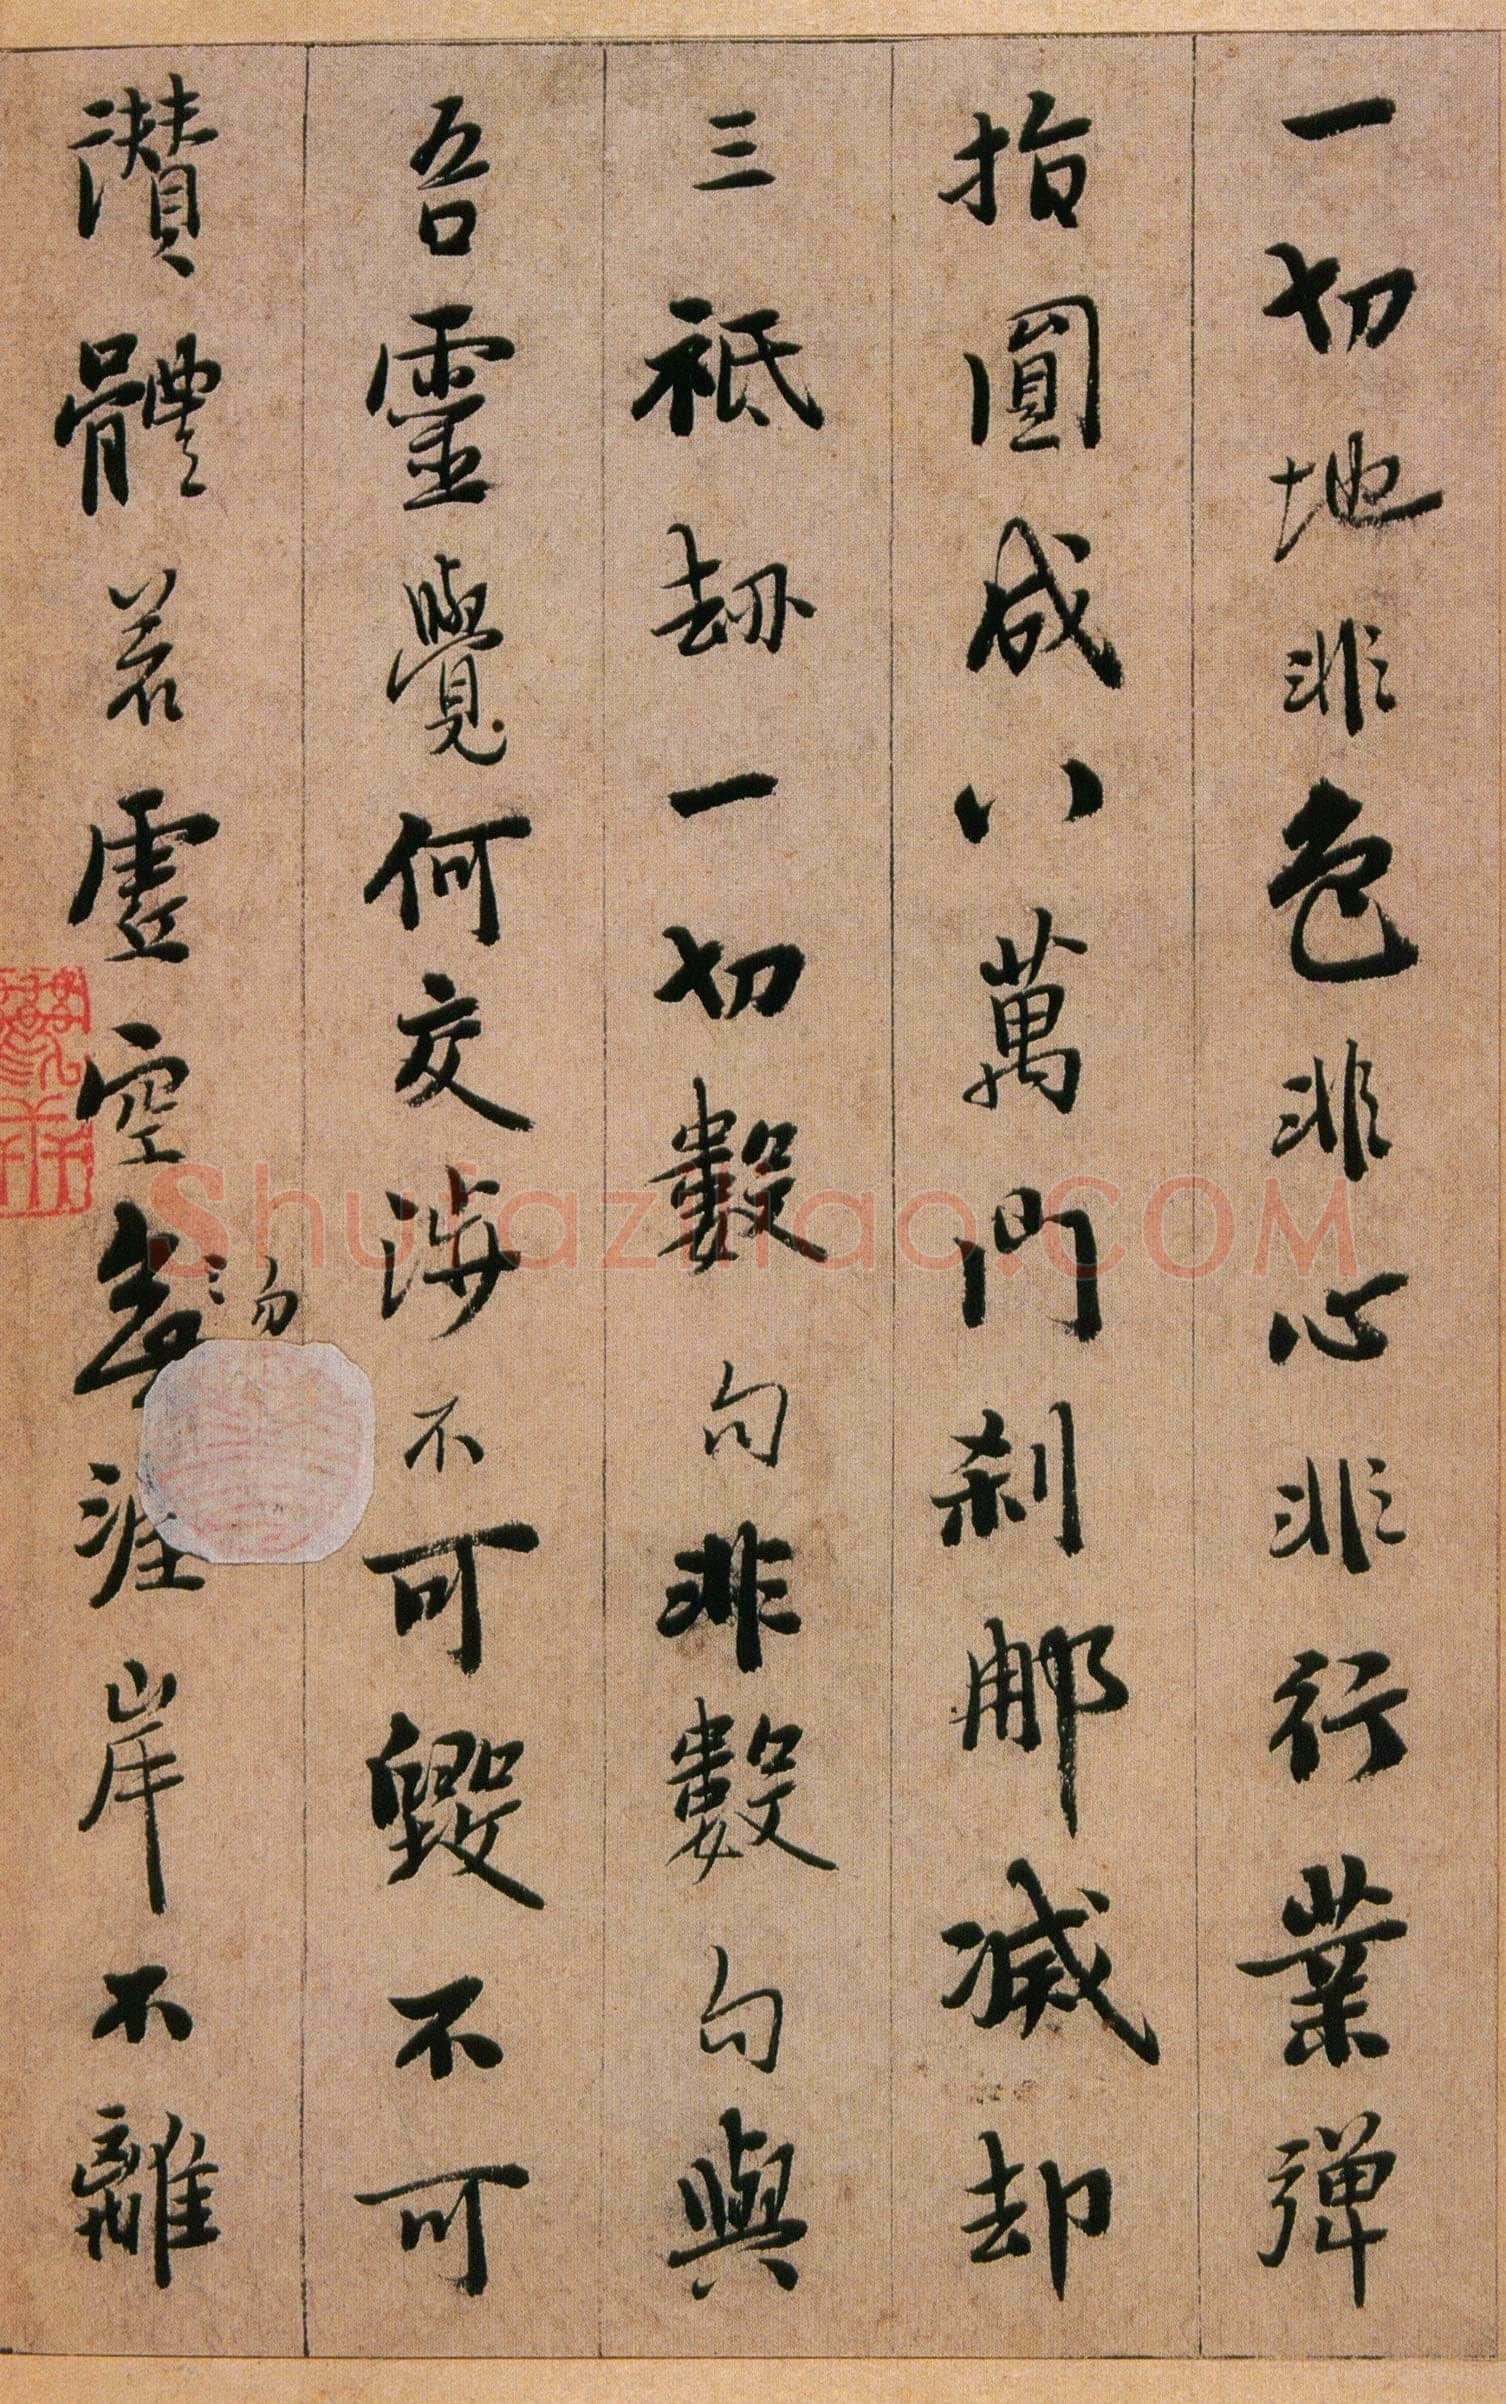 一切地非色非心非行業弹
指圓成八萬門刹那减却
三祇劫一切數句非數句與
吾靈覺何交涉不可毀不可
讃體若虛空無涯岸不離
勿
Shufaziliao.COM